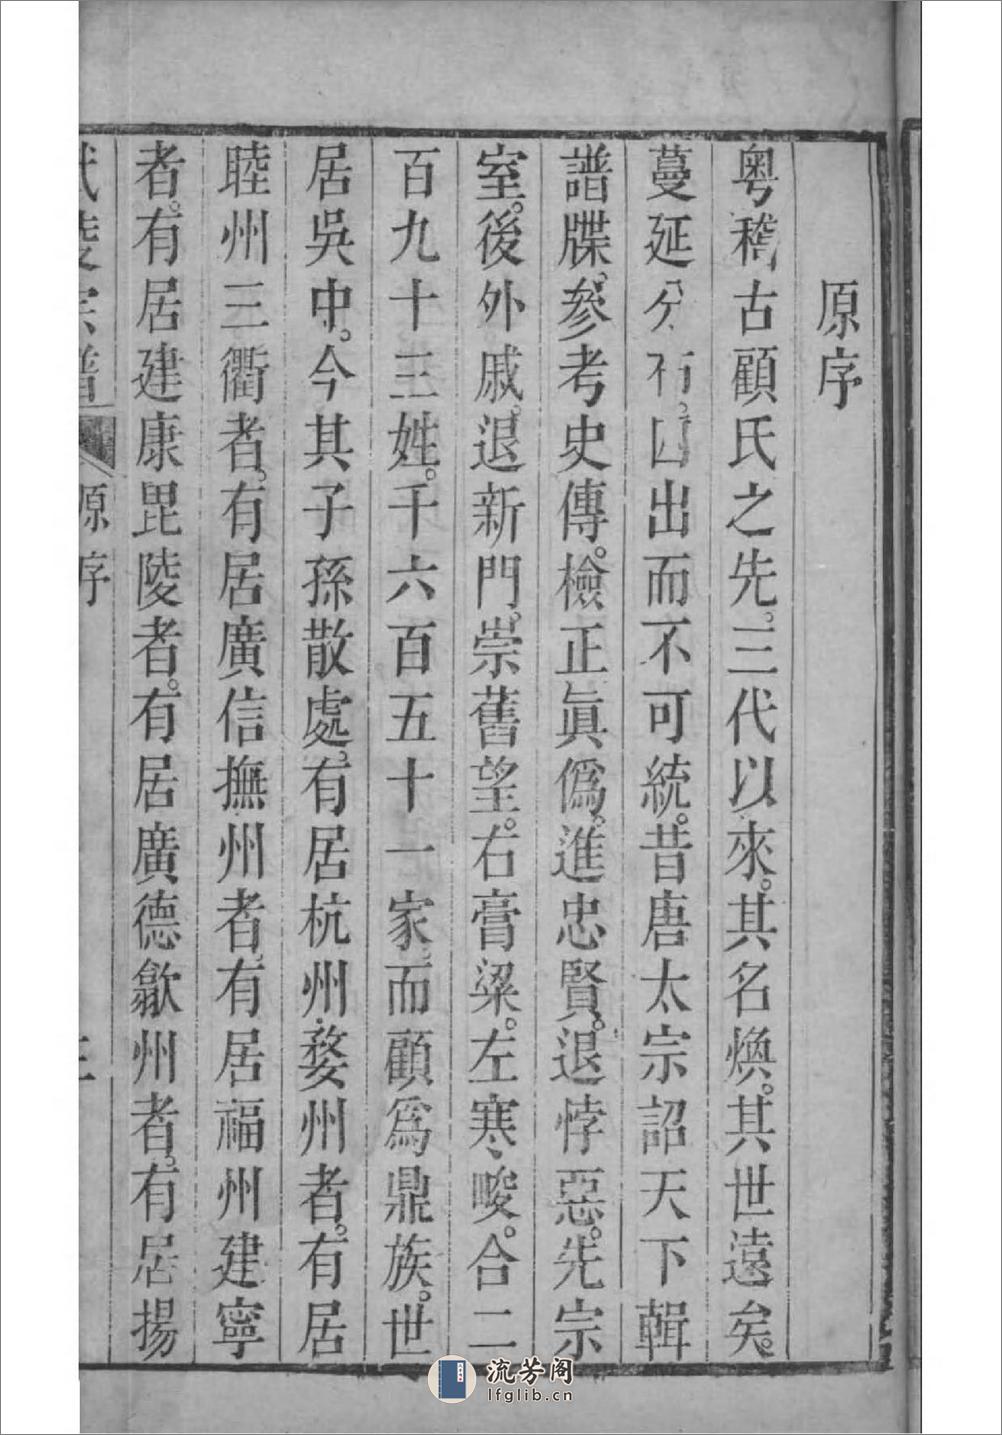 原序
粤稽古顧氏之先。三代以來。其名煥。其世遠矣。
蔓延分出而不可統。昔唐太宗詔天下輯
譜牒。參考史傳。檢正眞僞。進忠賢。退悖惡。先宗
室。後外戚。退新門。崇舊望。右膏粱。左寒畯。合二
百九十三姓。千六百五十一家。而顧爲鼎族。世
居吳中。今其子孫散處。有居杭州婺州者。有居
睦州三衢者。有居廣信撫州者。有居福州建寧
者。有居建康毘陵者。有居廣德歙州者。有居揚
武陵宗譜 原序
流芳阁
lfglib.cn